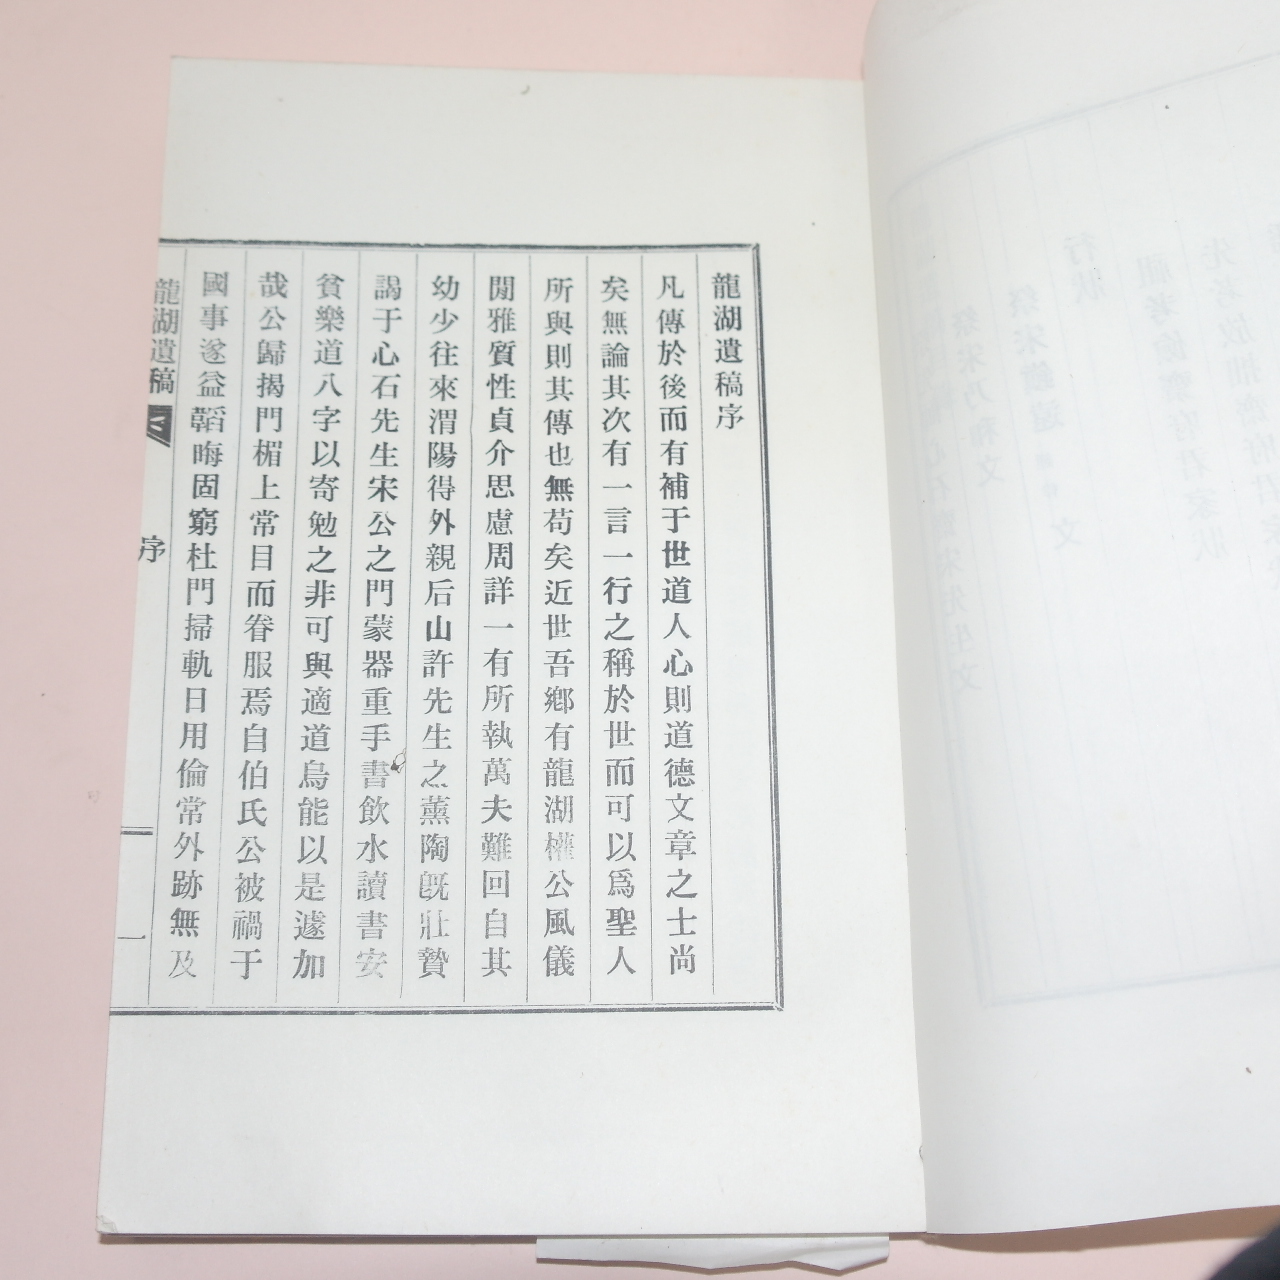 龍湖遺稿序
凡傳於後而有補于世道人心則道德文章之士尚
矣無論其次有一言一行之稱於世而可以爲聖人
所與則其傳也無苟矣近世吾鄕有龍湖權公風儀
閒雅質性貞介思慮周詳一有所執萬夫難回自其
幼少往來渭陽得外親后山許先生之薰陶旣壯贄
謁于心石先生宋公之門蒙器重手書飮水讀書安
貧樂道八字以寄勉之非可與適道烏能以是遽加
哉公歸揭門楣上常目而眷服焉自伯氏公被禍于
國事遂益韜晦固窮杜門掃軌日用倫常外跡無及
龍湖遺稿 序 一
行狀
祭宋 遠 文
祭宋乃和文
心石 宋先生文